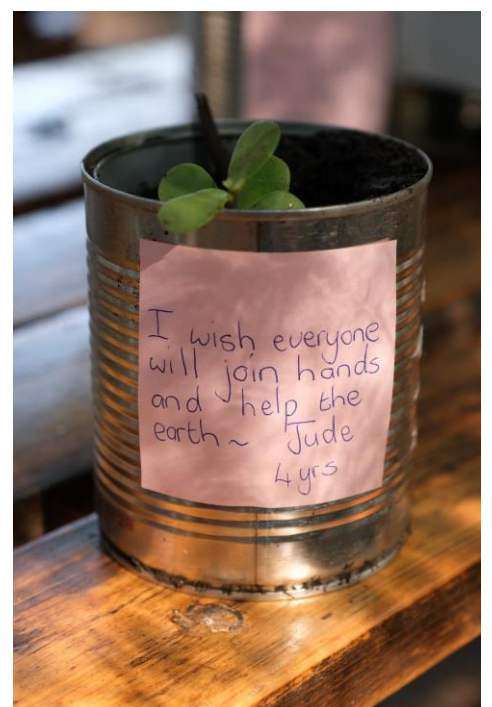 I wish everyone
will join hands
and help the
earth ~ Jude
4 yrs